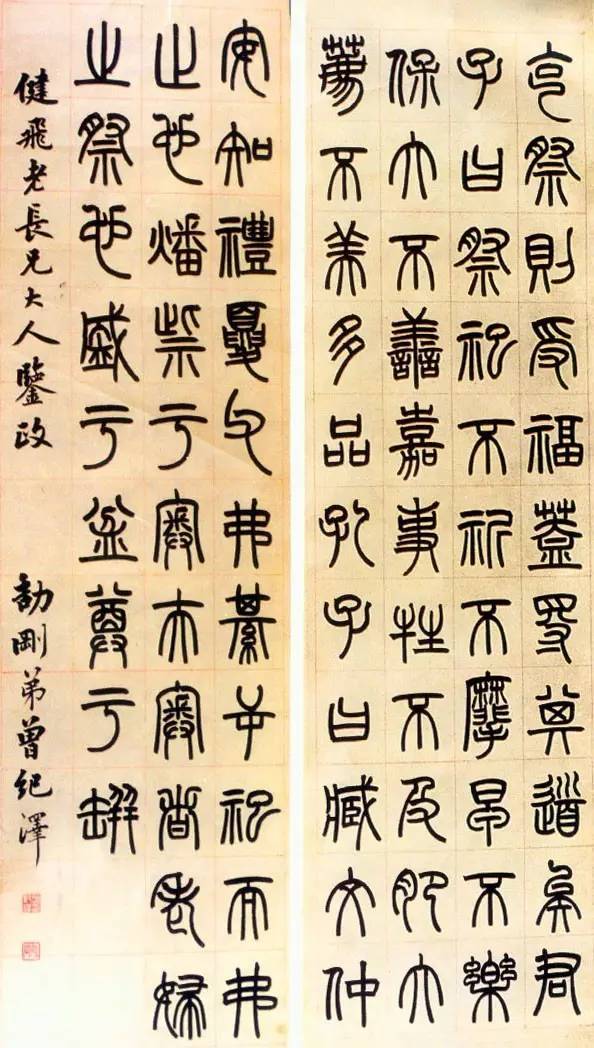 克祭則受福蓋得其道矣君
子曰祭祀不祈不麾早不樂
保大不善嘉事牲不及肥大
薦不美多品孔子曰臧文仲
安知禮夏父弗綦屰祀而弗
止也燔柴于奧夫奧者老婦
之祭也盛于盆尊于缾
健飛老長兄大人鑒政 劼剛弟曾紀澤